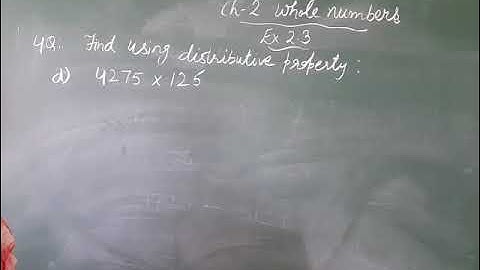 Ch-2 whole numbers
Ex 2.3
4Q. Find using distributive property :
d) 4275 x 125